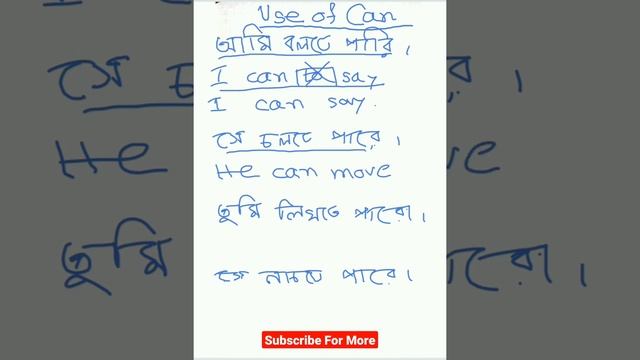 Use of Can
আমি বলতে পারি ।
I can to say
I can say.
সে চলতে পারে ।
He can move
তুমি লিখতে পারো ।
সে নাচতে পারে ।
Subscribe For More